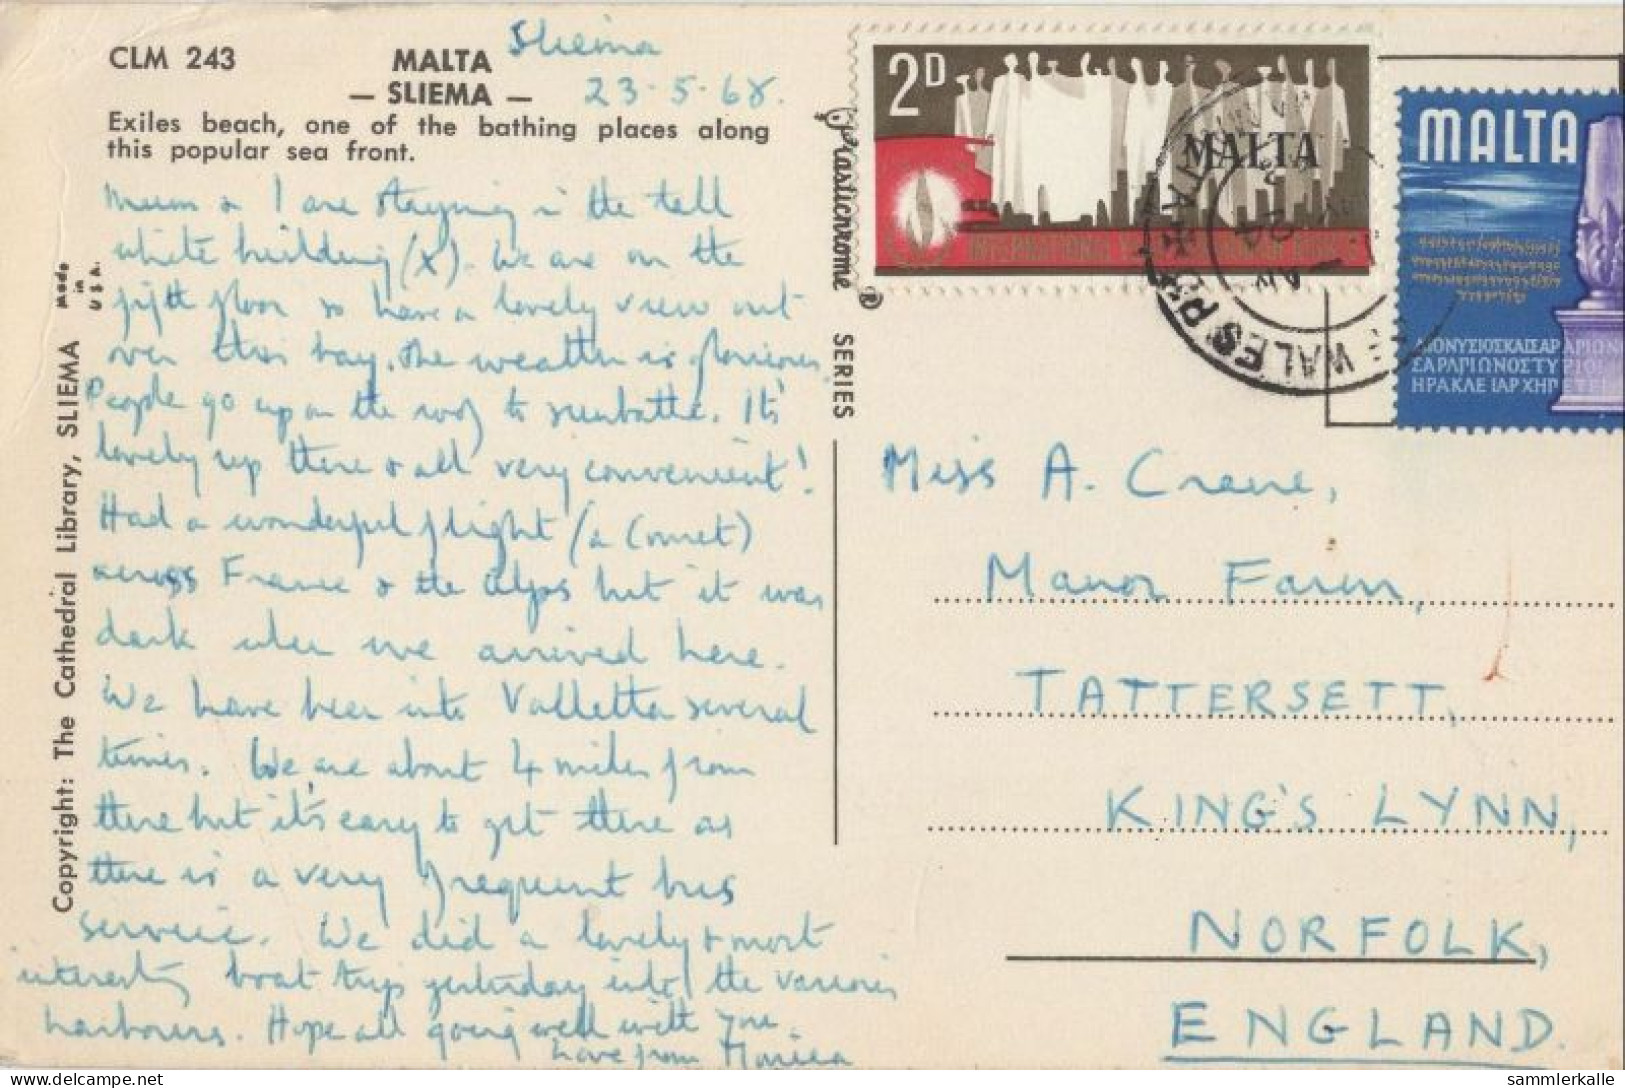 CLM 243
MALTA
— SLIEMA —
Sliema
23.5.68.
Exiles beach, one of the bathing places along
this popular sea front.
Mum & I are staying in the tall
white building (X). We are on the
fifth floor so have a lovely view out
over this bay. The weather is glorious.
People go up on the roof to sunbathe. It's
lovely up there & all very convenient!
Had a wonderful flight (a Comet)
across France & the Alps but it was
dark when we arrived here.
We have been into Valletta several
times. We are about 4 miles from
there but it's easy to get there as
there is a very frequent bus
service. We did a lovely & most
interesting boat trip yesterday into the various
harbours. Hope all going well with you.
Love from Monica
Made
in
U S A.
Copyright: The Cathedral Library, SLIEMA
Plastichrome ® SERIES
2D
MALTA
MALTA
ΔΙΟΝΥΣΙΟΣΚΑΙΣΑΡΑΡΙΩΝ
ΣΑΡΑΠΙΩΝΟΣΤΥΡΙΟΙ
ΗΡΑΚΛΕΙΑΡΧΗΓΕΤΕΙ
WALES RD
24
AM
Miss A. Crane,
Manor Farm,
TATTERSETT,
KING'S LYNN,
NORFOLK,
ENGLAND.
sammlerkalle